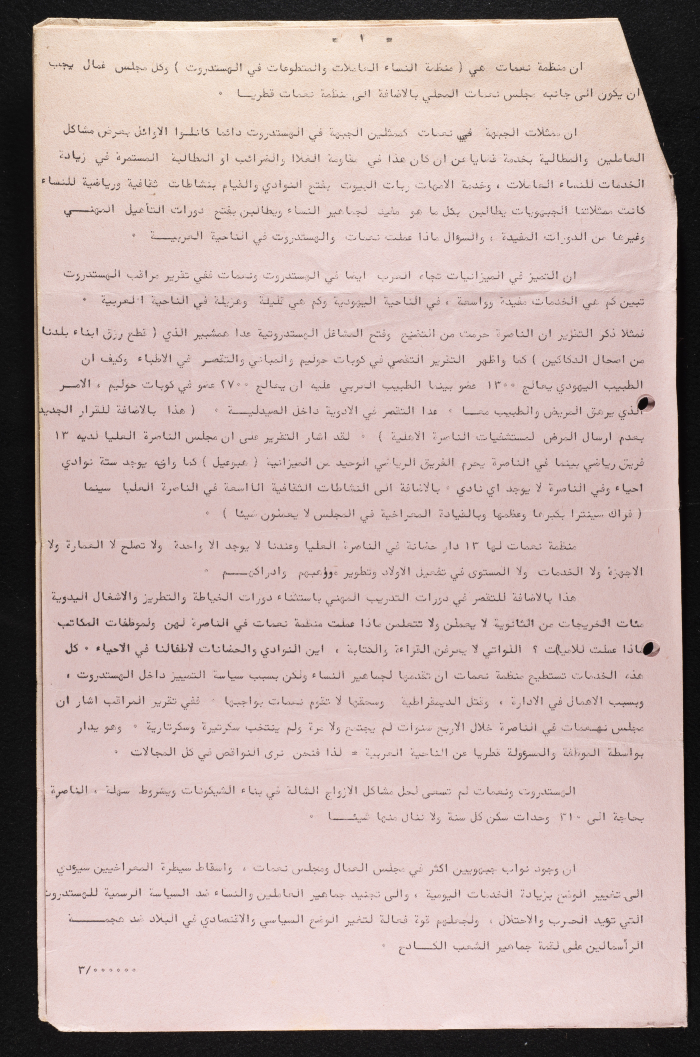 = ١ =
ان منظمة نعمات هي ( منظمة النساء العاملات والمتطوعات في الهستدروت ) وكل مجلس عمال يجب
ان يكون الى جانبه مجلس نعمات المحلي بالاضافة الى منظمة نعمات قطريــا ٠
ان ممثلات الجبهة في نعمات كممثلين الجبهة في الهستدروت دائما كانـوا الاوائل بعرض مشاكل
العاملين والمطالبة بخدمة قضايا من ان كان هذا في مقاومة الغلاا والضرائب او المطالبة المستمرة في زيادة
الخدمات للنساء العاملات ، وخدمة الامهات ربات البيوت بفتح النوادي والقيام بنشاطات ثقافية ورياضية للنساء
كانت ممثلاتنا الجبهويات يطالبن بكل ما هو مفيد لجماهير النساء ويطالبن بفتح دورات التأهيل المهنــي
وغيرها من الدورات المفيدة ، والسؤال ماذا عملت نعمات والهستدروت في الناحية العربيـــة ٠
ان التميز في الميزانيات تجاه العرب ايضا في الهستدروت ونعمات ففي تقرير مراقب الهستدروت
تبين كم هي الخدمات مفيدة وواسعة ، في الناحية اليهودية وكم هي قليلة وهزيلة في الناحية العربية ٠
فمثلا ذكر التقرير ان الناصرة حرمت من التصنيع وفتح المشاغل الهستدروتية عدا همشبير الذي ( قطع رزق ابناء بلدنا
من اصحال الدكاكين ) كما واظهر التقرير النقص في كوبات حوليم والمباني والنقص في الاطباء وكيف ان
الطبيب اليهودي يعالج ١٣٠٠ عضو بينما الطبيب العربي عليه ان يعالج ٢٧٠٠ عضو في كوبات حوليم ، الامــر
الذي يرهق المريض والطبيب معــا ٠ عدا النقص في الادوية داخل الصيدليـــة ٠ ( هذا بالاضافة للقرار الجديد
بعدم ارسال المرضى لمستشفيات الناصرة الاهلية ) ٠ لقد اشار التقرير على ان مجلس الناصرة العليا لديه ١٣
فريق رياضي بينما في الناصرة يحرم الفريق الرياضي الوحيد من الميزانية ( هبوعيل ) كما وانه يوجد ستة نوادي
احياء وفي الناصرة لا يوجد اي نادي ٠ بالاضافة الى النشاطات الثقافية الااسعة في الناصرة العليا سينما
( فراك سينترا بكبرها وعظمها وبالقيادة المعراخية في المجلس لا يعملون شيئا ) ٠
منظمة نعمات لها ١٣ دار حضانة في الناصرة العليا وعندنا لا يوجد الا واحدة ولا تصلح لا العمارة ولا
الاجهزة ولا الخدمات ولا المستوى في تفعيل الاولاد وتطوير ووعيهم وادراكهـــم ٠
هذا بالاضافة للنقص في دورات التدريب المهني باستثناء دورات الخياطة والتطريز والاشغال اليدوية
مئات الخريجات من الثانوية لا يعملن ولا تتعلمن ماذا عملت منظمة نعمات في الناصرة لهن ولموظفات المكاتب
ماذا عملت للاميات ؟ اللواتي لا يعرفن القراءة والكتابة ، اين النوادي والحضانات لاطفالنا في الاحياء ٠ كل
هذه الخدمات تستطيع منظمة نعمات ان تقدمها لجماهير النساء ولكن بسبب سياسة التمييز داخل الهستدروت ،
وبسبب الاهمال في الادارة ، وقتل الديمقراطية وسحقها لا تقوم نعمات بواجبها ٠ ففي تقرير المراقب اشار ان
مجلس نعمات في الناصرة خلال الاربع سنوات لم يجتمع ولا مرة ولم ينتخب سكرتيرة وسكرتارية ٠ وهو يدار
بواسطة الموظفة والمسؤولة قطريا عن الناحية العربية = لذا فنحن نرى النواقص في كل المجالات ٠
الهستدروت ونعمات لم تسعى لحل مشاكل الازواج الشابة في بناء الشيكونات وبشروط سهلة ، الناصرة
بحاجة الى ٣١٠ وحدات سكن كل سنة ولا ننال منها شيئــا ٠
ان وجود نواب جبهويين اكثر في مجلس العمال ومجلس نعمات ، واسقاط سيطرة المعراخيين سيؤدي
الى تغيير الوضع بزيادة الخدمات اليومية ، والى تجنيد جماهير العاملين والنساء ضد السياسة الرسمية للهستدروت
التي تؤيد الحرب والاحتلال ، ولجعلهم قوة فعالة لتغير الوضع السياسي والاقتصادي في البلاد ضد هجمـــة
الرأسمالين على لقمة جماهير الشعب الكــادح ٠
٣/٠٠٠٠٠٠